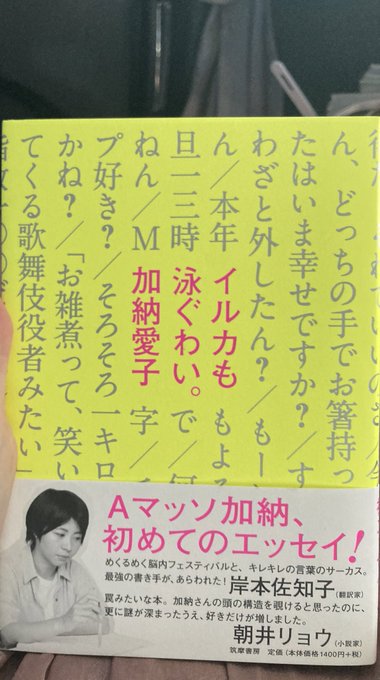 ん、どっちの手でお箸持っ
たはいま幸せですか？／す
わざと外したん？／もー
ん／本年
イルカも
もよ
旦一三時
泳ぐわい。
で／
ねん／M
加納愛子
字／
プ好き？／そろそろ一キロ
かね？／「お雑煮って、笑い
てくる歌舞伎役者みたい」
Aマッソ加納、
初めてのエッセイ！
めくるめく脳内フェスティバルと、キレキレの言葉のサーカス。
最強の書き手が、あらわれた！ 岸本佐知子（翻訳家）
罠みたいな本。加納さんの頭の構造を覗けると思ったのに、
更に謎が深まったうえ、好きだけが増しました。
朝井リョウ（小説家）
筑摩書房 定価（本体価格1400円＋税）